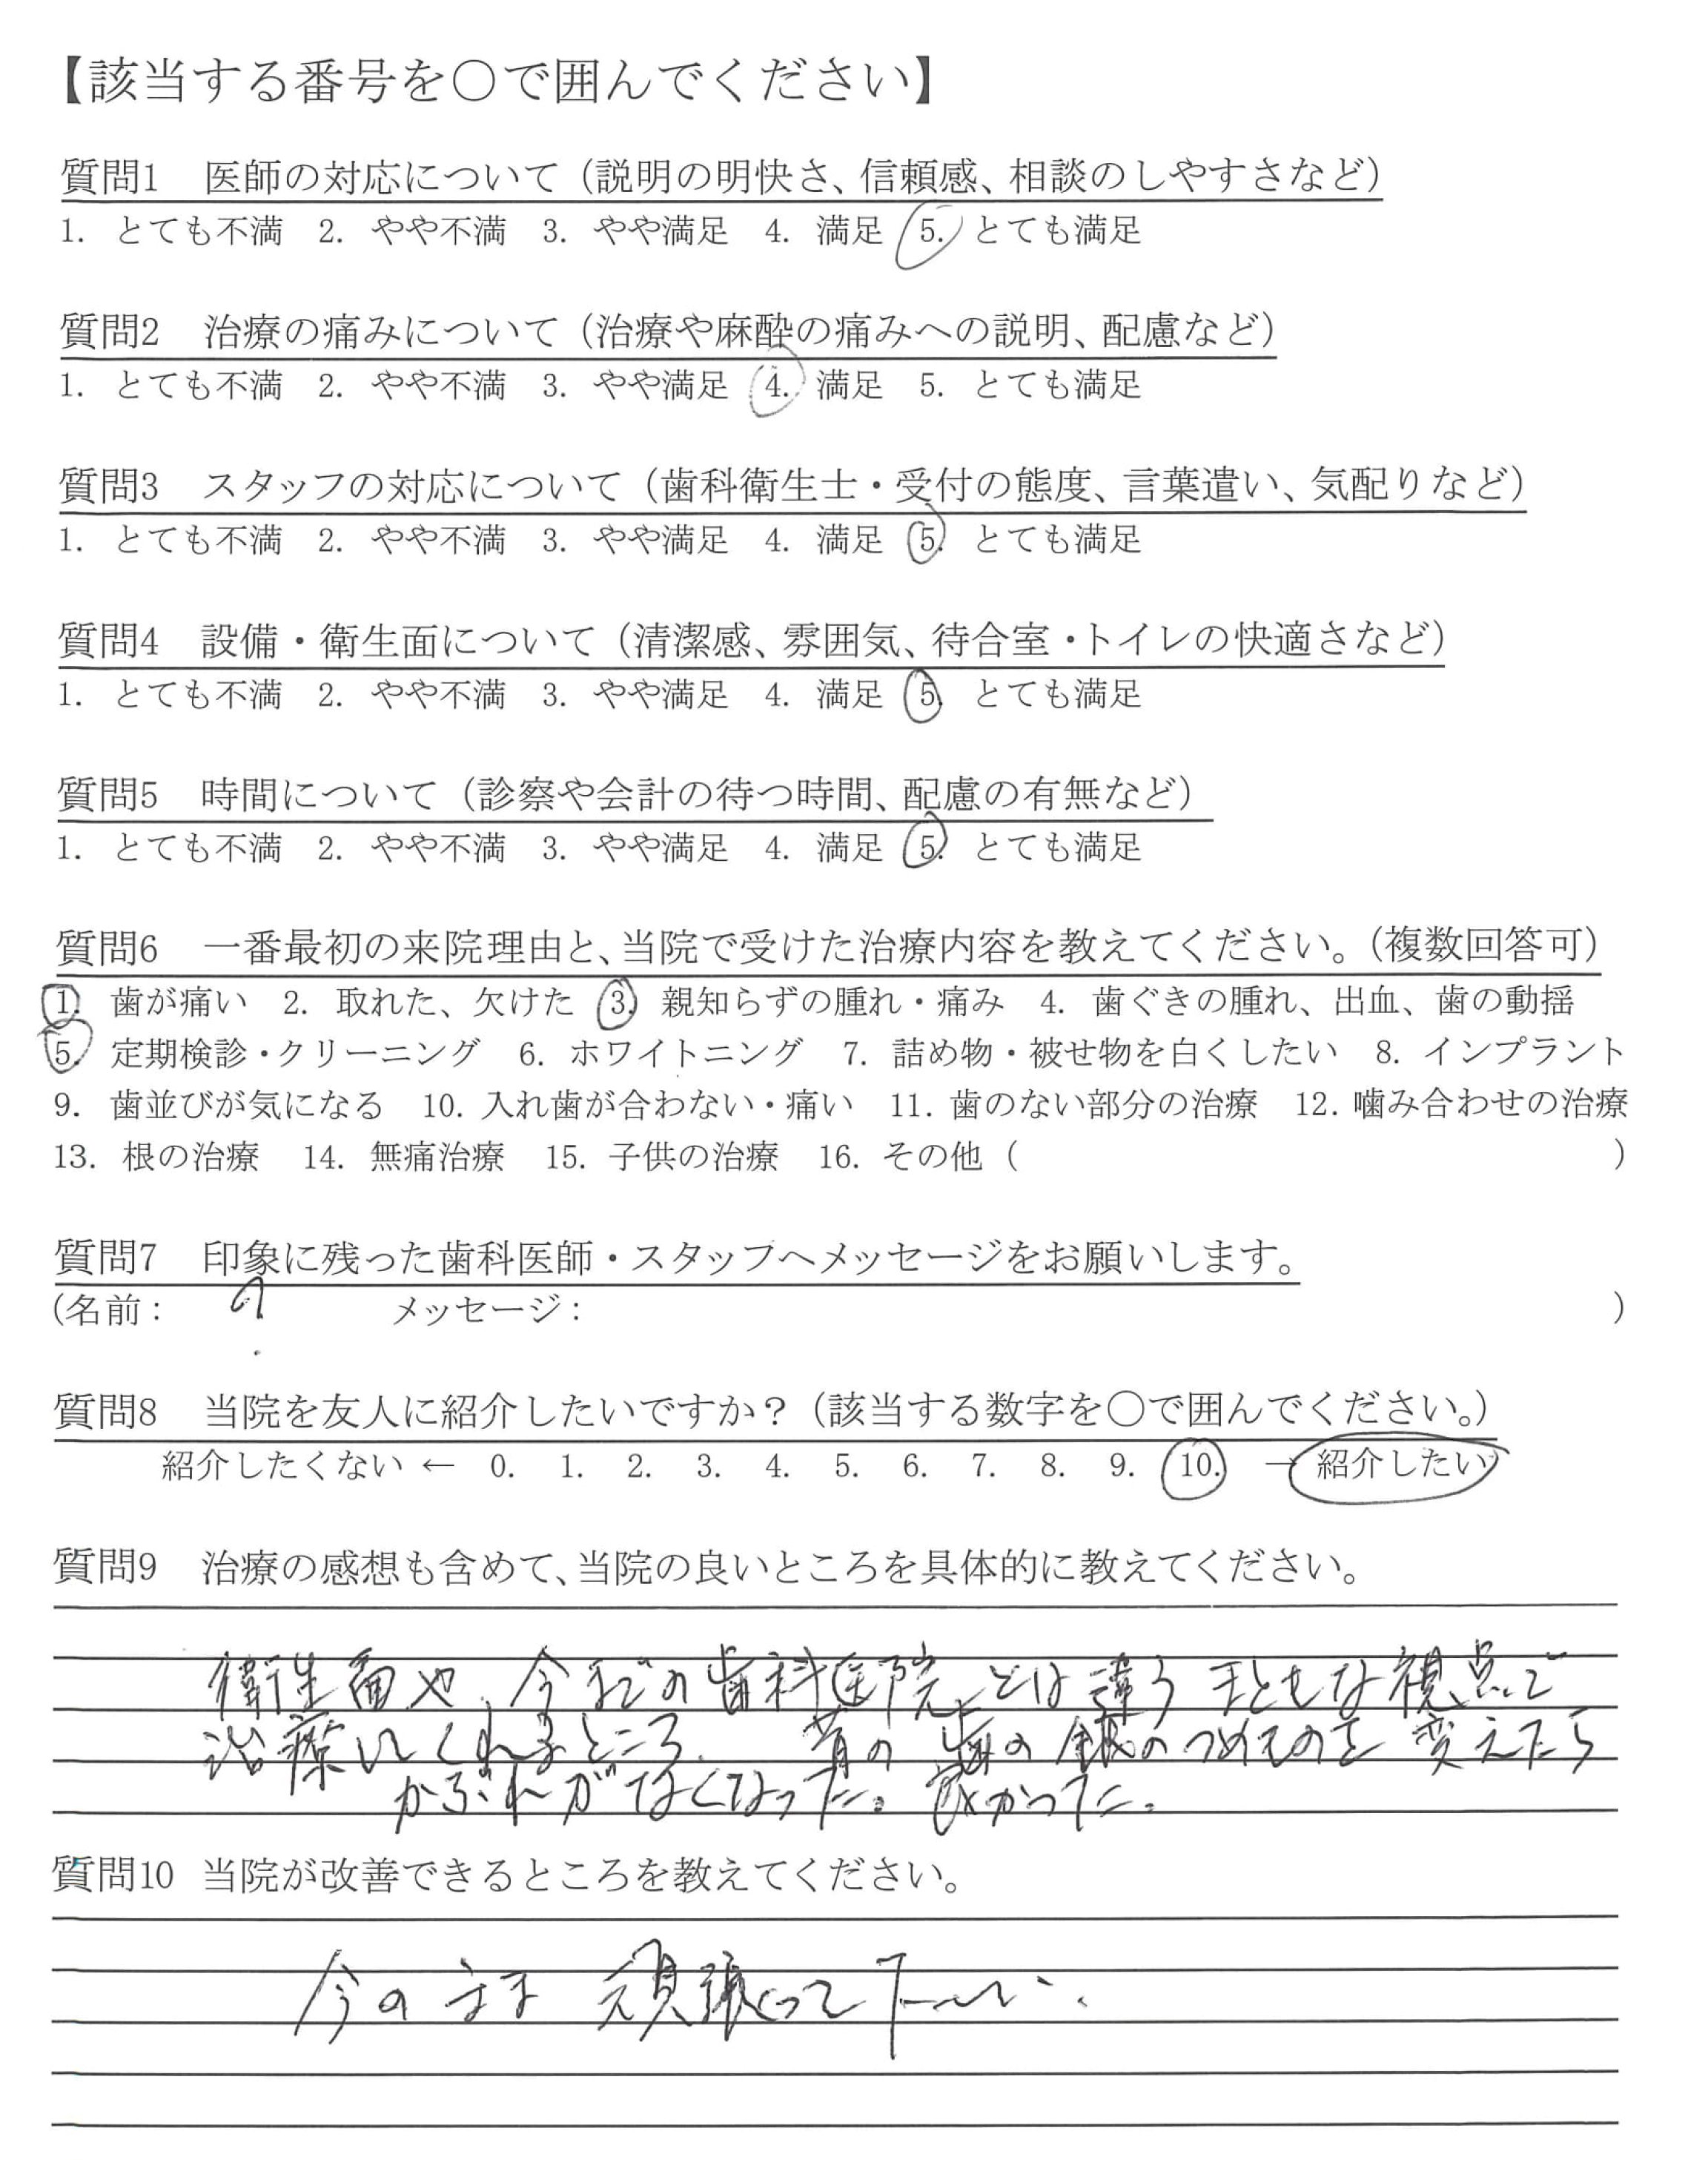 【該当する番号を○で囲んでください】
質問1　医師の対応について（説明の明快さ、信頼感、相談のしやすさなど）
1. とても不満　2. やや不満　3. やや満足　4. 満足　5. とても満足
質問2　治療の痛みについて（治療や麻酔の痛みへの説明、配慮など）
1. とても不満　2. やや不満　3. やや満足　4. 満足　5. とても満足
質問3　スタッフの対応について（歯科衛生士・受付の態度、言葉遣い、気配りなど）
1. とても不満　2. やや不満　3. やや満足　4. 満足　5. とても満足
質問4　設備・衛生面について（清潔感、雰囲気、待合室・トイレの快適さなど）
1. とても不満　2. やや不満　3. やや満足　4. 満足　5. とても満足
質問5　時間について（診察や会計の待つ時間、配慮の有無など）
1. とても不満　2. やや不満　3. やや満足　4. 満足　5. とても満足
質問6　一番最初の来院理由と、当院で受けた治療内容を教えてください。（複数回答可）
1. 歯が痛い　2. 取れた、欠けた　3. 親知らずの腫れ・痛み　4. 歯ぐきの腫れ、出血、歯の動揺
5. 定期検診・クリーニング　6. ホワイトニング　7. 詰め物・被せ物を白くしたい　8. インプラント
9. 歯並びが気になる　10. 入れ歯が合わない・痛い　11. 歯のない部分の治療　12. 噛み合わせの治療
13. 根の治療　14. 無痛治療　15. 子供の治療　16. その他（　）
質問7　印象に残った歯科医師・スタッフへメッセージをお願いします。
（名前：　?　メッセージ：　）
質問8　当院を友人に紹介したいですか？（該当する数字を○で囲んでください。）
紹介したくない ← 0. 1. 2. 3. 4. 5. 6. 7. 8. 9. 10. → 紹介したい
質問9　治療の感想も含めて、当院の良いところを具体的に教えてください。
衛生面や、今までの歯科医院とは違う まともな視点で
治療してくれるところ。 昔の 歯の 銀のつめものを 変えたら
かぶれがでなくなった。良かった。
質問10　当院が改善できるところを教えてください。
今のまま 頑張って下さい.